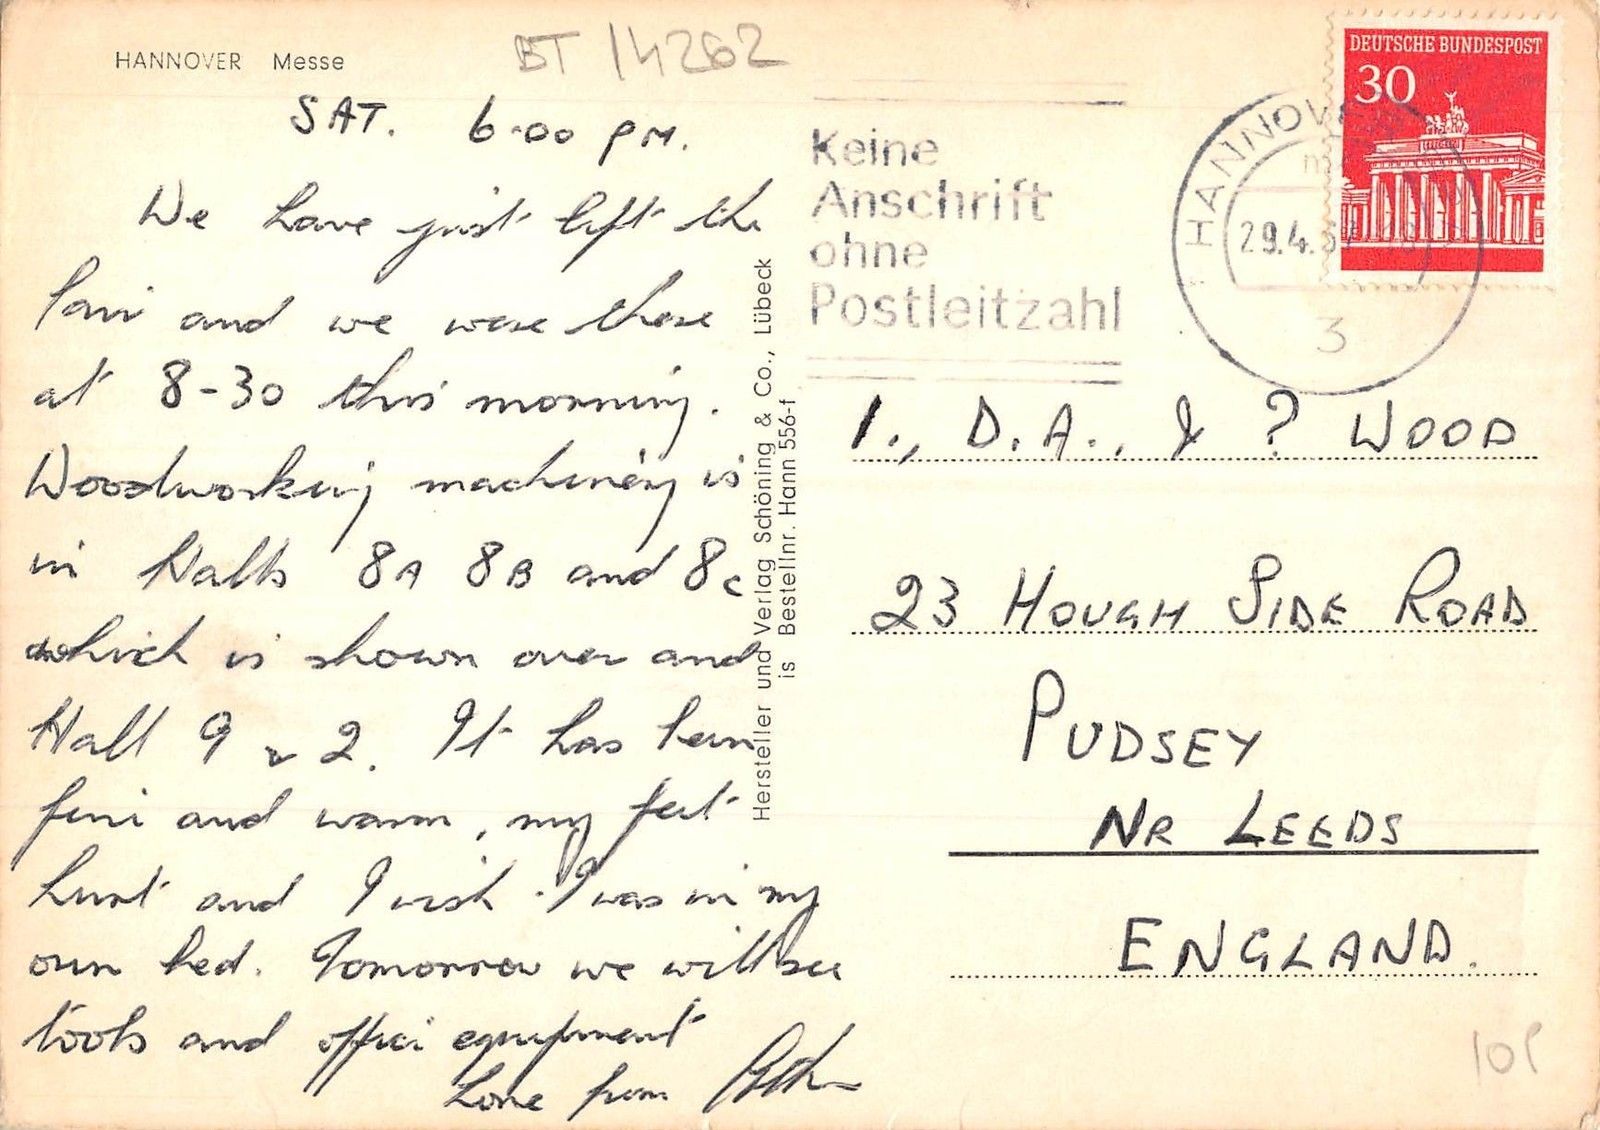 HANNOVER Messe
BT 14262
SAT. 6.00 PM.
We have just left the
fair and we were there
at 8-30 this morning.
Woodworking machinery is
in Halls 8A 8B and 8C
which is shown over and
Hall 9 & 2. It has been
fine and warm, my feet
hurt and I wish I was in my
own bed. Tomorrow we will see
tools and office equipment
Love from
Hersteller und Verlag Schöning & Co., Lübeck
is Bestellnr. Hann 556-f
Keine
Anschrift
ohne
Postleitzahl
HANNOVER
29.4.67
3
DEUTSCHE BUNDESPOST
30
1., D.A., & ? WOOD
23 HOUGH SIDE ROAD
PUDSEY
NR LEEDS
ENGLAND.
10P